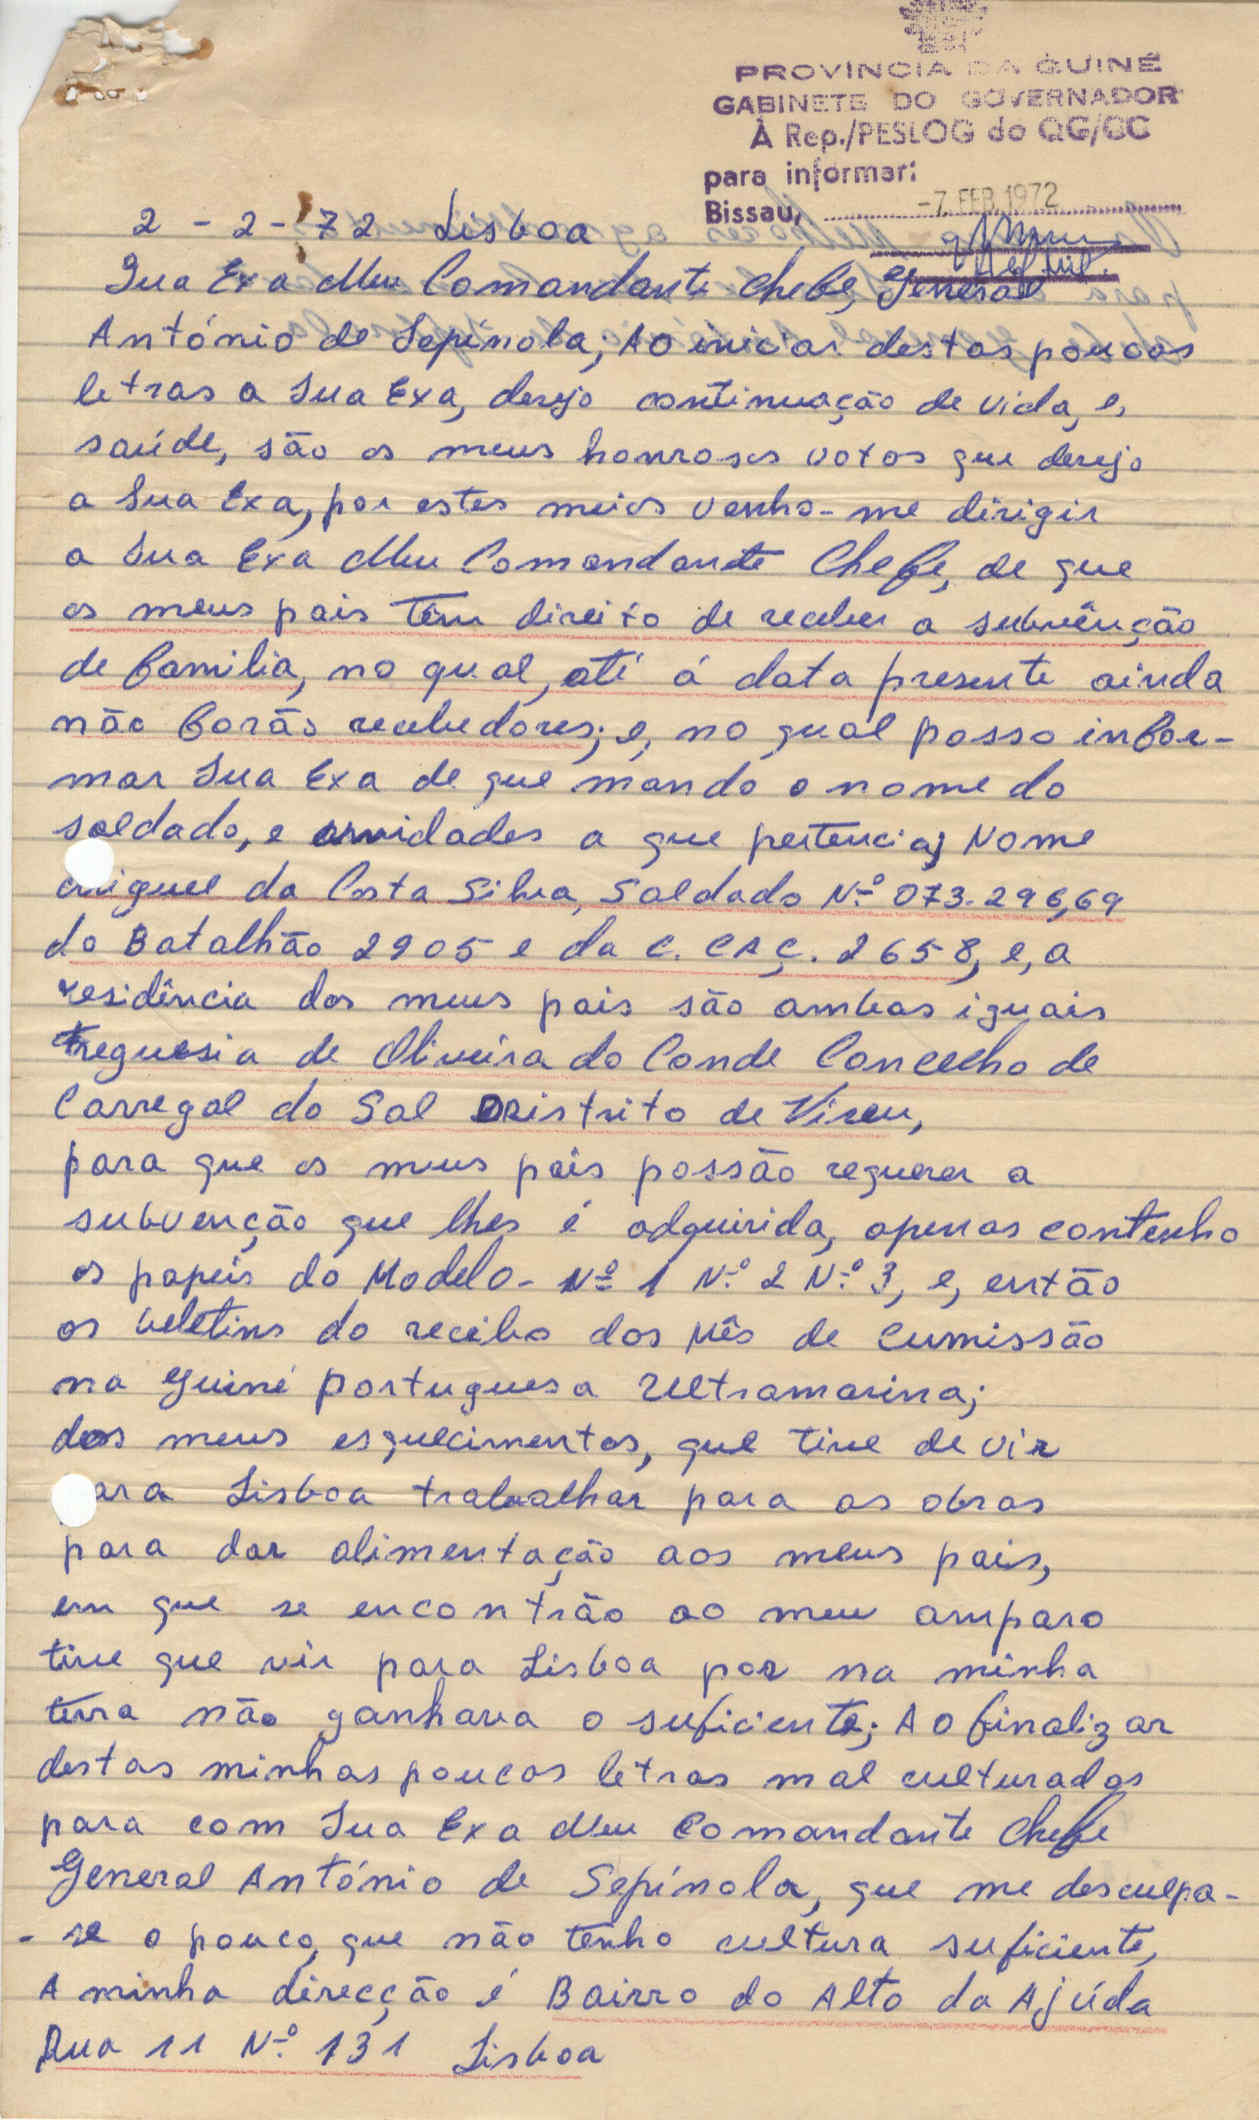 PROVINCIA DA GUINÉ
GABINETE DO GOVERNADOR
À Rep./PESLOG do QG/CC
para informar:
Bissau, -7. FEB. 1972
2 - 2 - 72 Lisboa
Sua Exa Meu Comandante Chefe, General
António de Sepínola, Ao iniciar destas poucas
letras a Sua Exa, desejo continuação de vida, e,
saúde, são os meus honrosos votos que desejo
a Sua Exa, por estes meios venho-me dirigir
a Sua Exa Meu Comandante Chefe, de que
os meus pais têm direito de receber a subvênção
de familia, no qual, até á data presente ainda
não forão recebedores; e, no qual posso infor-
mar Sua Exa de que mando o nome do
soldado, e unidades a que pertencia; Nome
Miguel da Costa Silva, Soldado Nº 073.296,69
do Batalhão 2905 e da C. CAÇ. 2658, e, a
residência dos meus pais são ambas iguais
Freguesia de Oliveira do Conde Concelho de
Carregal do Sal Distrito de Viseu,
para que os meus pais possão requerer a
subvenção que lhes é adquirida, apenas contenho
os papeis do Modelo - Nº 1 Nº 2 Nº 3, e, então
os beletins do recibo dos Mês de Cumissão
na Guiné Portuguesa Ultramarina;
dos meus esquecimentos, que tive de vir
para Lisboa trabalhar para as obras
para dar alimentação aos meus pais,
em que se encontrão ao meu amparo
tive que vir para Lisboa por na minha
terra não ganhava o suficiente; Ao finalizar
destas minhas poucas letras mal culturadas
para com Sua Exa Meu Comandante Chefe
General António de Sepínola, que me desculpa-
- se o pouco, que não tenho cultura suficiente,
A minha direcção é Bairro do Alto da Ajúda
Rua 11 Nº 131 Lisboa